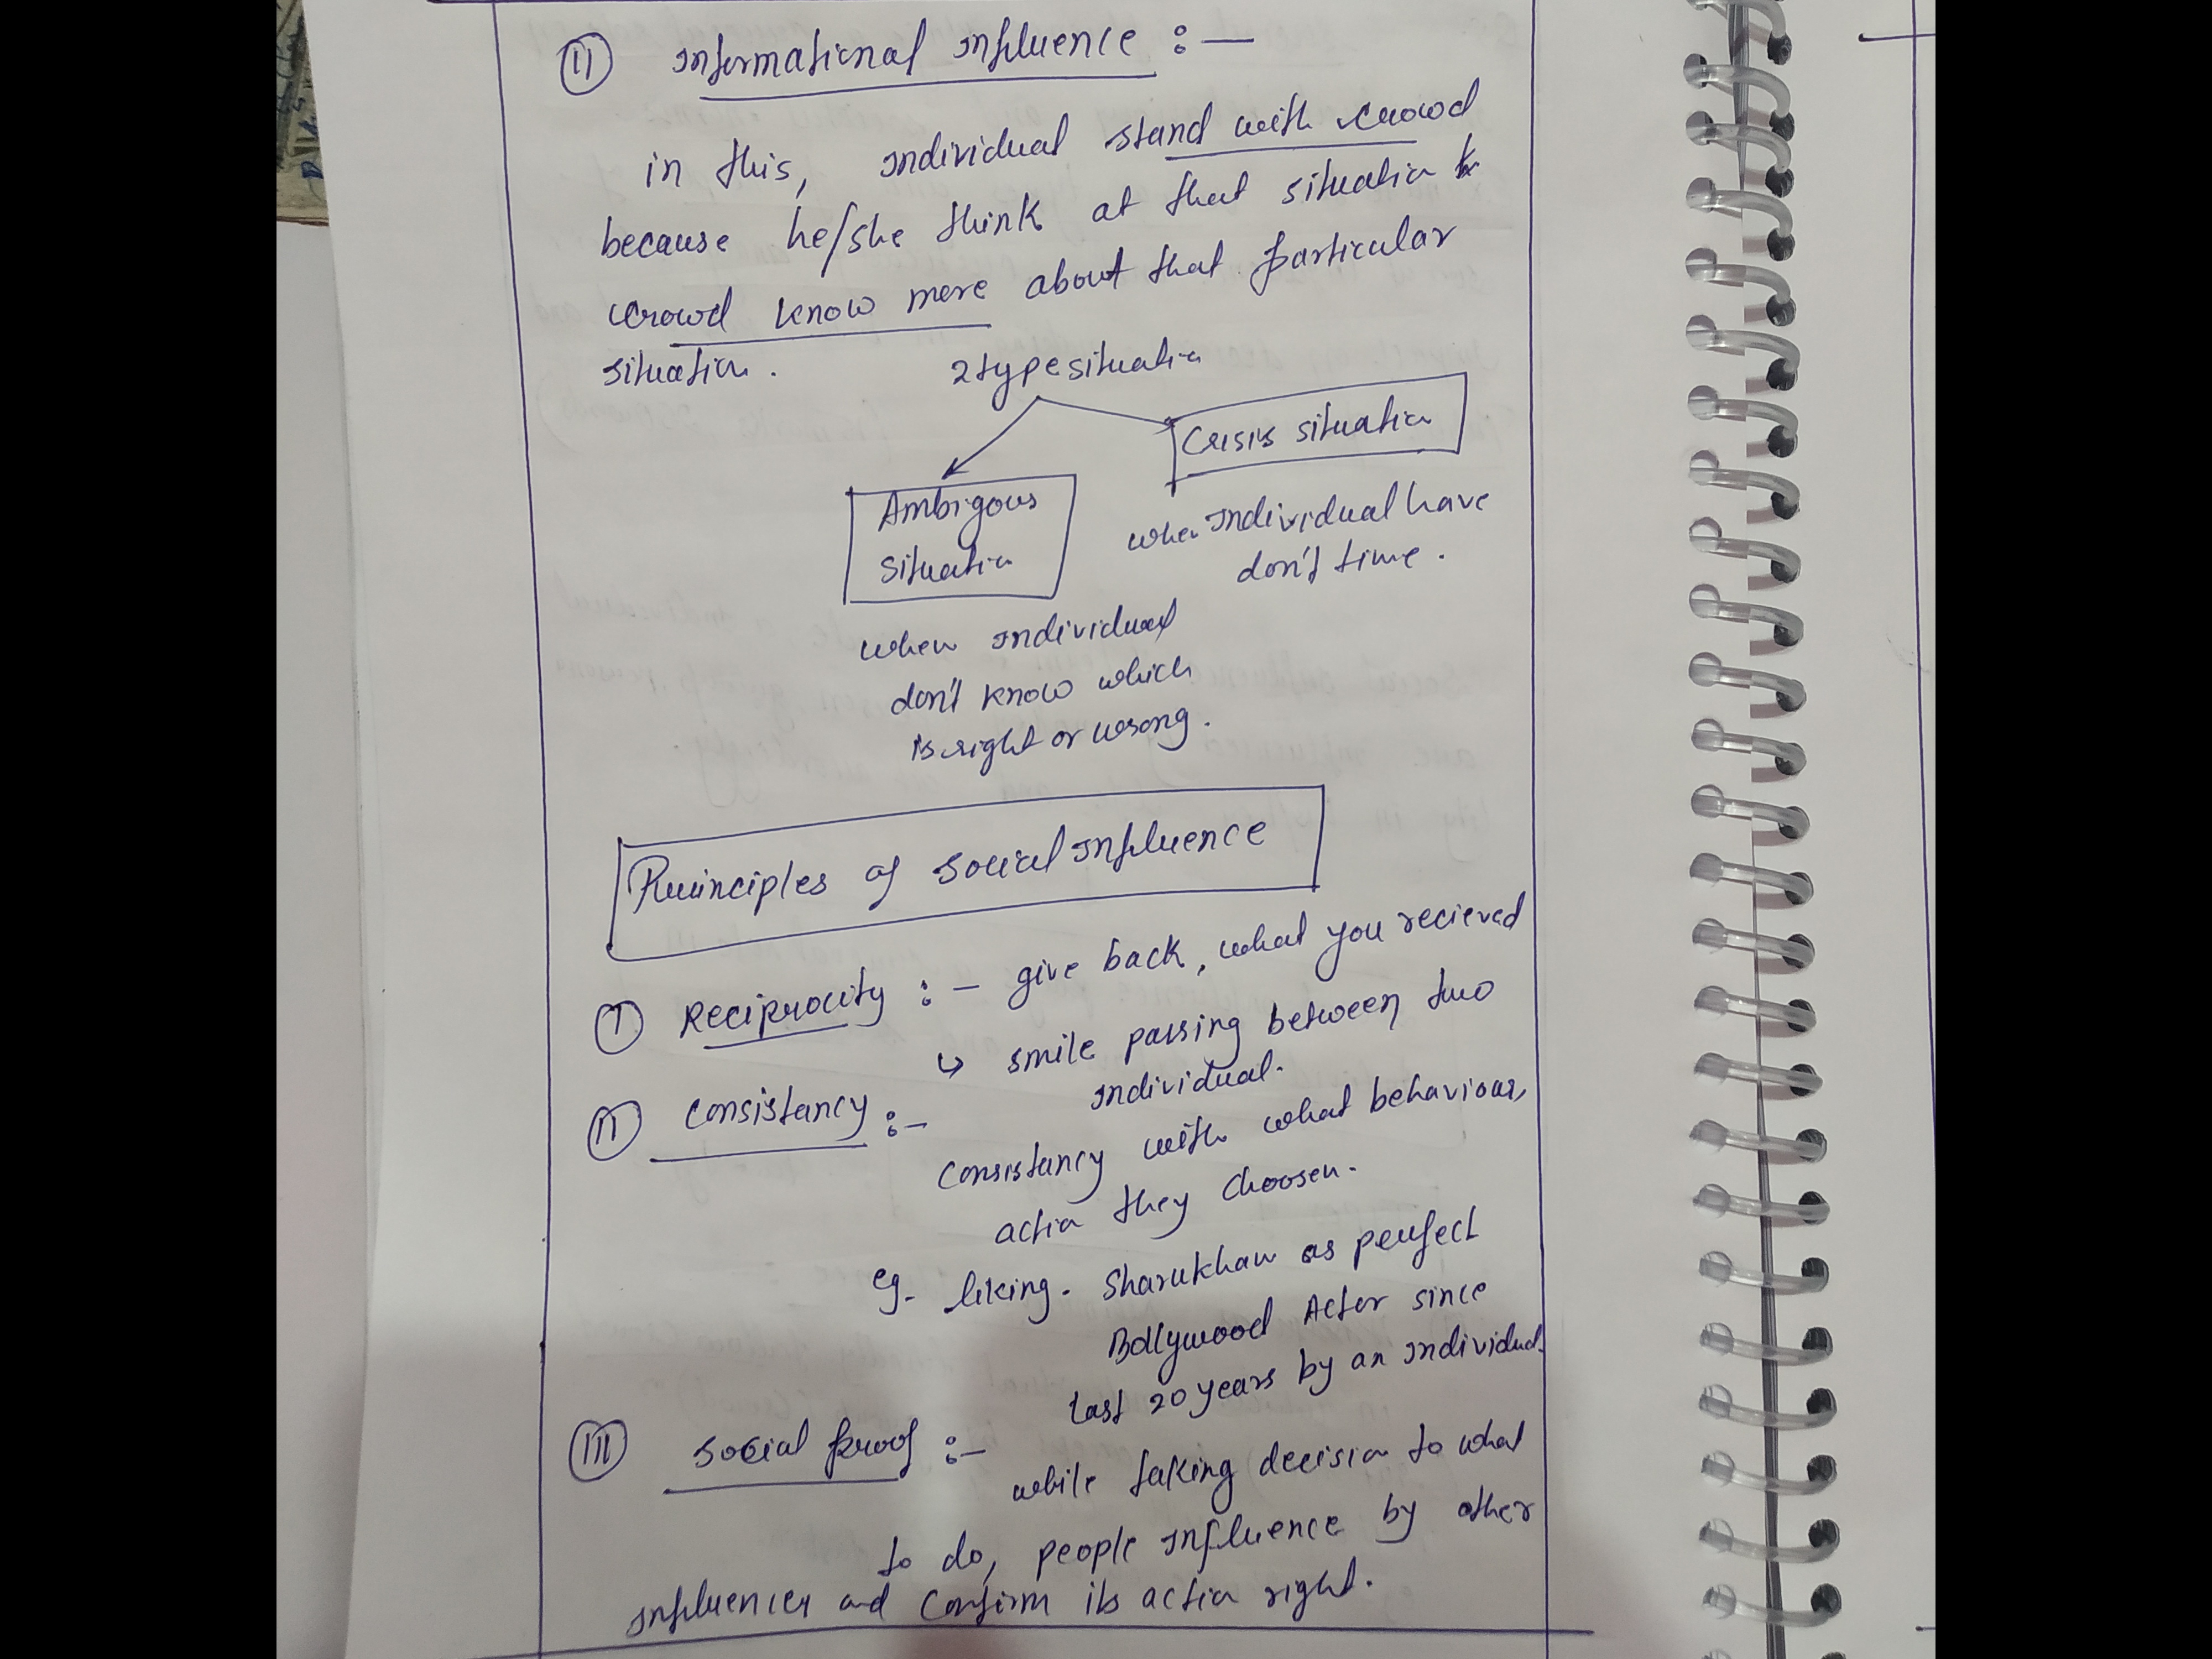 (II) Informational Influence :—
in this, Individual stand with crowd
because he/she think at that situation
crowd know more about that particular
situation.
2 type situation
Crisis situation
when Individual have
don't time.
Ambigous
situation
when Individual
don't know which
is right or wrong.
Principles of Social Influence
(I) Reciprocity :— give back, what you recieved
↳ smile passing between two
Individual.
(II) Consistancy :—
Consistancy with what behaviour,
action they choosen.
eg. liking. Sharukhan as perfect
Bollywood Actor since
last 20 years by an Individual.
(III) Social proof :—
while taking decision to what
to do, people Influence by other
Influencer and Confirm its action right.